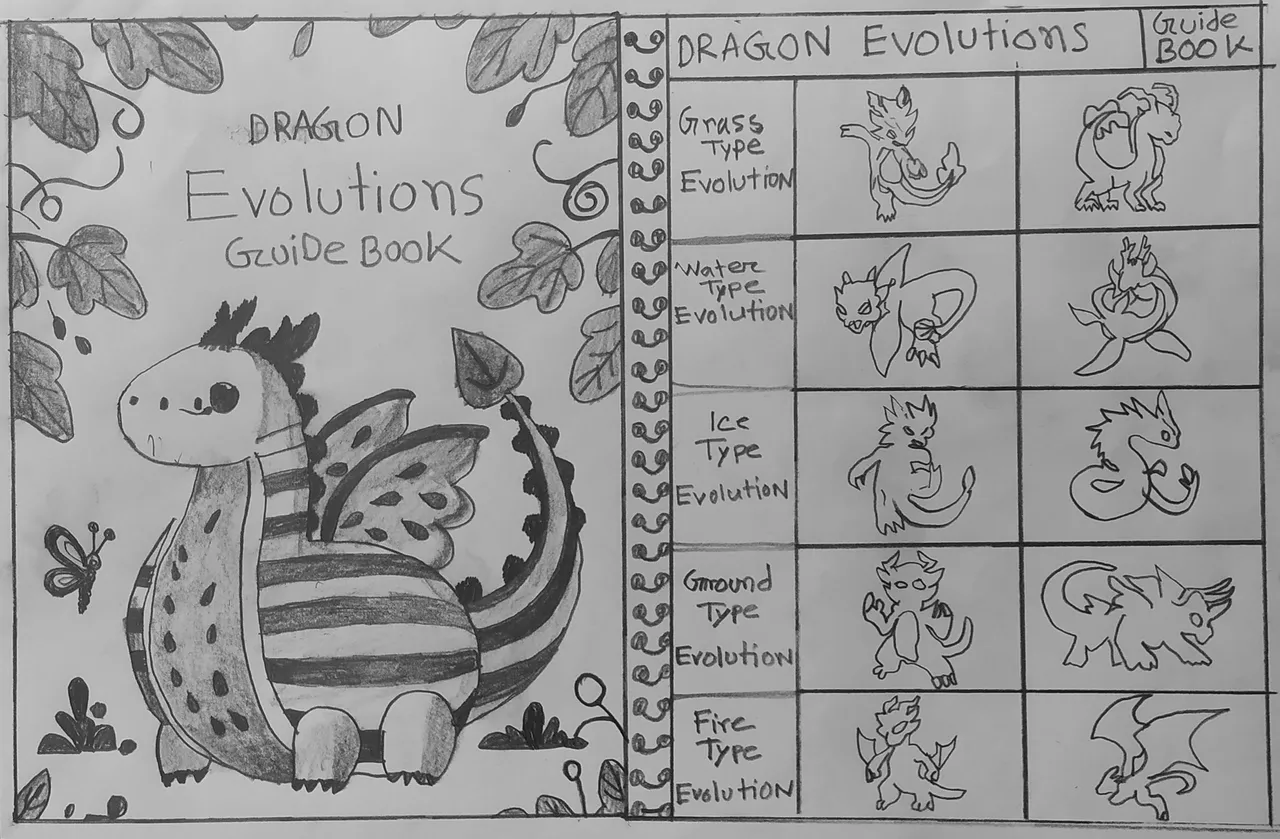 DRAGON
Evolutions
GuiDe BOOK
DRAGON Evolutions
Guide
BOOK
Grass
Type
Evolution
Water
Type
Evolution
Ice
Type
Evolution
Ground
Type
Evolution
Fire
Type
Evolution